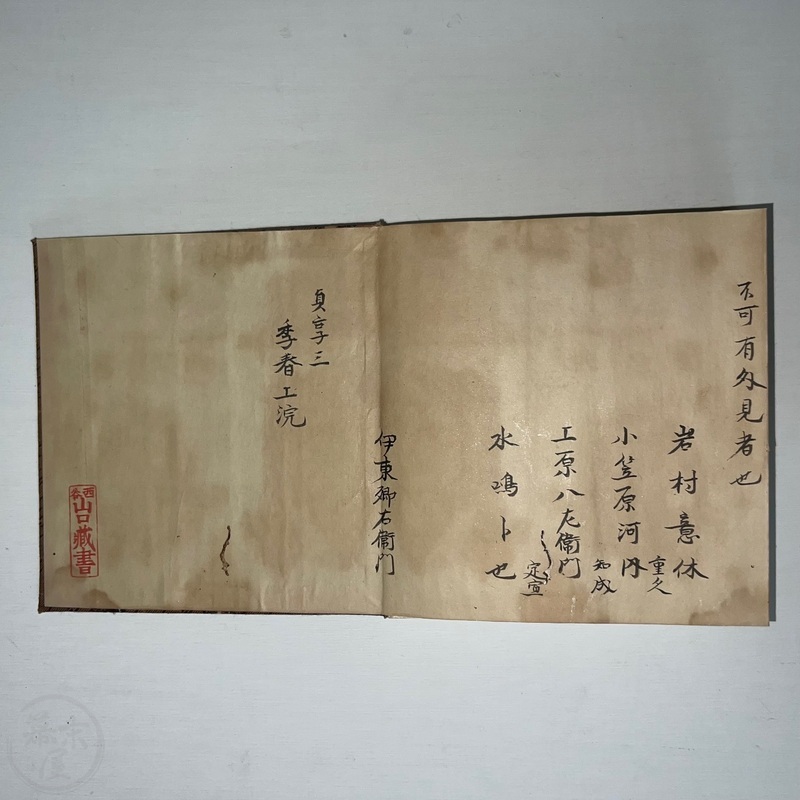 不可有外見者也
岩村意休
重久
小笠原河内
知成
工原八左衛門
定宣
水鳴卜也
伊東郷右衛門
貞享三
季春工浣
西春
山口蔵書